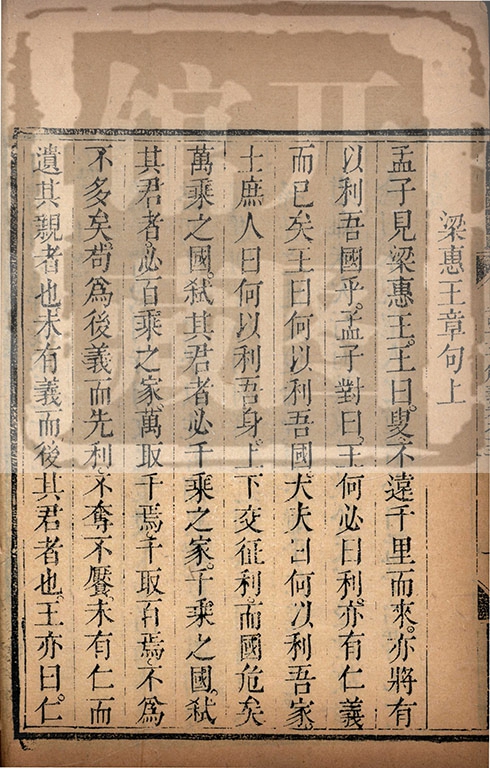 梁惠王章句上
孟子見梁惠王。王曰。叟不遠千里而來。亦將有
以利吾國乎。孟子對曰。王何必曰利。亦有仁義
而已矣。王曰何以利吾國。大夫曰何以利吾家。
士庶人曰何以利吾身。上下交征利。而國危矣
萬乘之國。弑其君者必千乘之家。千乘之國。弑
其君者。必百乘之家。萬取千焉。千取百焉。不爲
不多矣。苟爲後義而先利。不奪不饜。未有仁而
遺其親者也未有義而後其君者也。王亦曰。仁